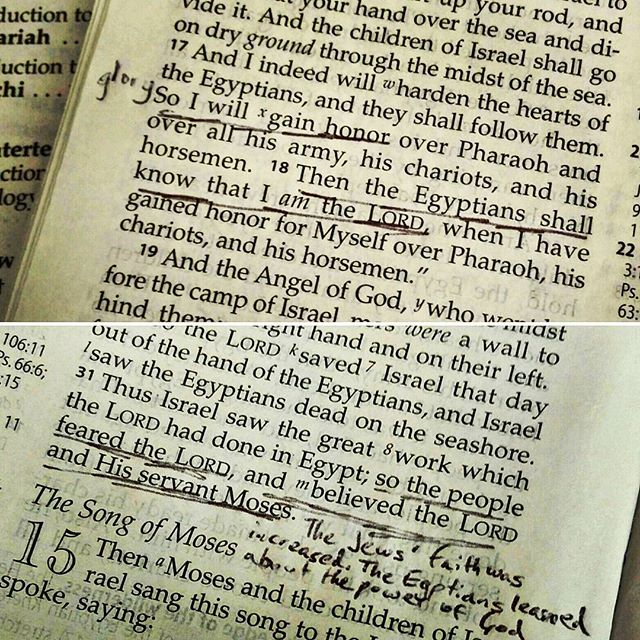 duction to
ariah ..
uction t
chi ...
terte
ction
logy
w
your hand over the sea and di-
up your rod, and
vide it. And the children of Israel shall go
on dry ground through the midst of the sea.
17 And I indeed will w harden the hearts of
the Egyptians, and they shall follow them.
glory
So I will x gain honor over Pharaoh and
over all his army, his chariots, and his
horsemen. 18 Then the Egyptians shall
know that I am the LORD, when I have
gained honor for Myself over Pharaoh, his
chariots, and his horsemen."
19 And the Angel of God, y who went
fore the camp of Israel,
hind them
22
3:
Ps.
63:
were a wall to
right hand and on their left.
the LORD k saved 7 Israel that day
out of the hand of the Egyptians, and Israel
l saw the Egyptians dead on the seashore.
31 Thus Israel saw the great 8 work which
the LORD had done in Egypt; so the people
feared the LORD, and m believed the LORD
and His servant Moses.
106:11
Ps. 66:6;
:15
11
The Jews' faith was
increased. The Egptians learned
about the power of God
The Song of Moses
15 Then a Moses and the children of Is
rael sang this song to the
spoke, saying: